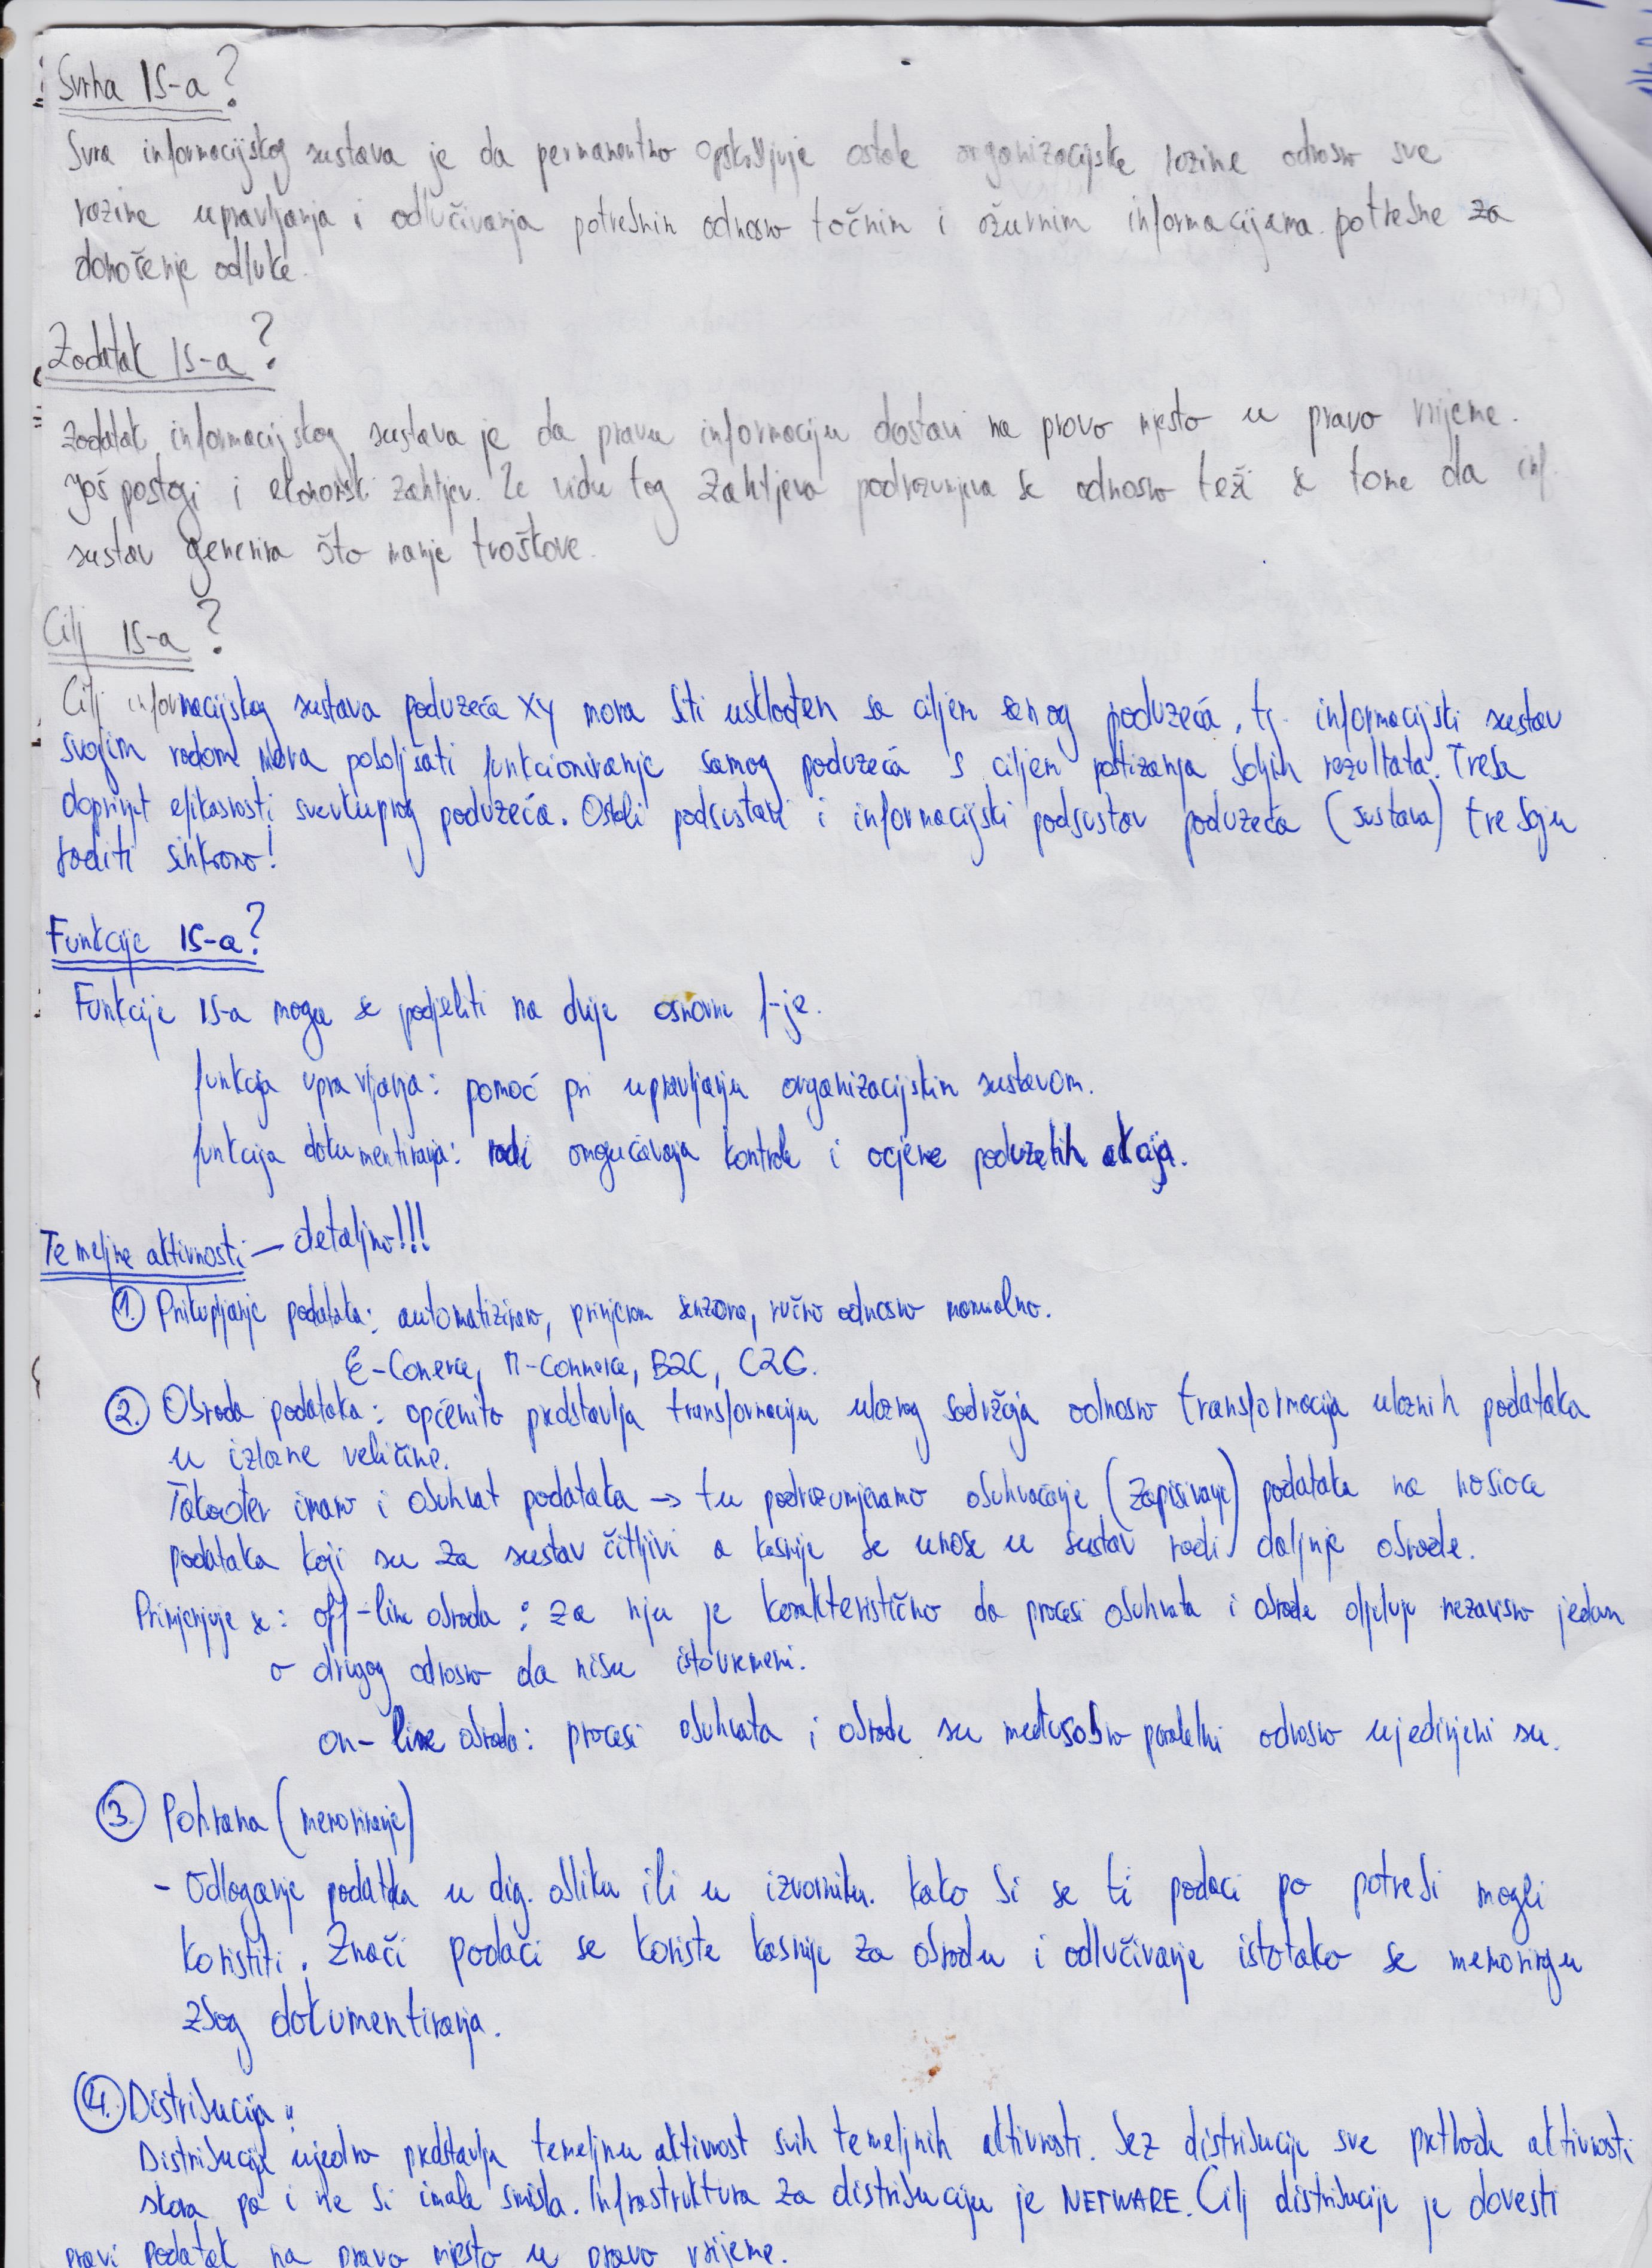 Svrha IS-a?
Svra informacijskog sustava je da permanentno opskrbljuje ostale organizacijske razine odnosno sve
razine upravljanja i odlučivanja potrebnim odnosno točnim i ažurnim informacijama potrebne za
donošenje odluke.
Zadatak IS-a?
Zadatak informacijskog sustava je da pravu informaciju dostavi na pravo mjesto u pravo vrijeme.
Još postoji i ekonomski zahtjev. Iz vidu tog zahtjeva podrazumjeva se odnosno teži se tome da inf.
sustav generira što manje troškove.
Cilj IS-a?
Cilj informacijskog sustava poduzeća XY mora biti usklađen sa ciljem samog poduzeća, tj. informacijski sustav
svojim radom mora poboljšati funkcioniranje samog poduzeća s ciljem postizanja boljih rezultata. Treba
doprinjet efikasnosti sveukupnog poduzeća. Ostali podsustavi i informacijski podsustav poduzeća (sustava) trebaju
raditi sinkrono!
Funkcije IS-a?
Funkcije IS-a mogu se podjeliti na dvije osnovne f-je.
funkcija upravljanja: pomoć pri upravljanju organizacijskim sustavom.
funkcija dokumentiranja: radi omogućavanja kontrole i ocjene poduzetih akcija.
Temeljne aktivnosti – detaljno!!!
1. Prikupljanje podataka: automatizirano, primjerom senzora, ručno odnosno manualno.
E-Comerce, M-Commerce, B2C, C2C.
2. Obrada podataka: općenito predstavlja transformaciju ulaznog sadržaja odnosno transformacija ulaznih podataka
u izlazne veličine.
Također imamo i obuhvat podataka → tu podrazumjevamo obuhvaćanje (zapisivanje) podataka na nosioce
podataka koji su za sustav čitljivi a kasnije se unose u sustav radi daljnje obrade.
Primjenjuje se: off-line obrada: za nju je karakteristično da procesi obuhvata i obrade djeluju nezavisno jedan
o drugog odnosno da nisu istovremeni.
on-line obrada: procesi obuhvata i obrade su međusobno paralelni odnosno ujedinjeni su.
3. Pohrana (memoriranje)
- Odlaganje podataka u dig. obliku ili u izvorniku. kako bi se ti podaci po potrebi mogli
koristiti. Znači podaci se koriste kasnije za obradu i odlučivanje istotako se memoriraju
zbog dokumentiranja.
4. Distribucija:
Distribucija ujedno predstavlja temeljnu aktivnost svih temeljnih aktivnosti. bez distribucije sve prethodne aktivnosti
skora pa i ne bi imale smisla. Infrastruktura za distribuciju je NETWARE. Cilj distribucije je dovesti
pravi podatak na pravo mjesto u pravo vrijeme.